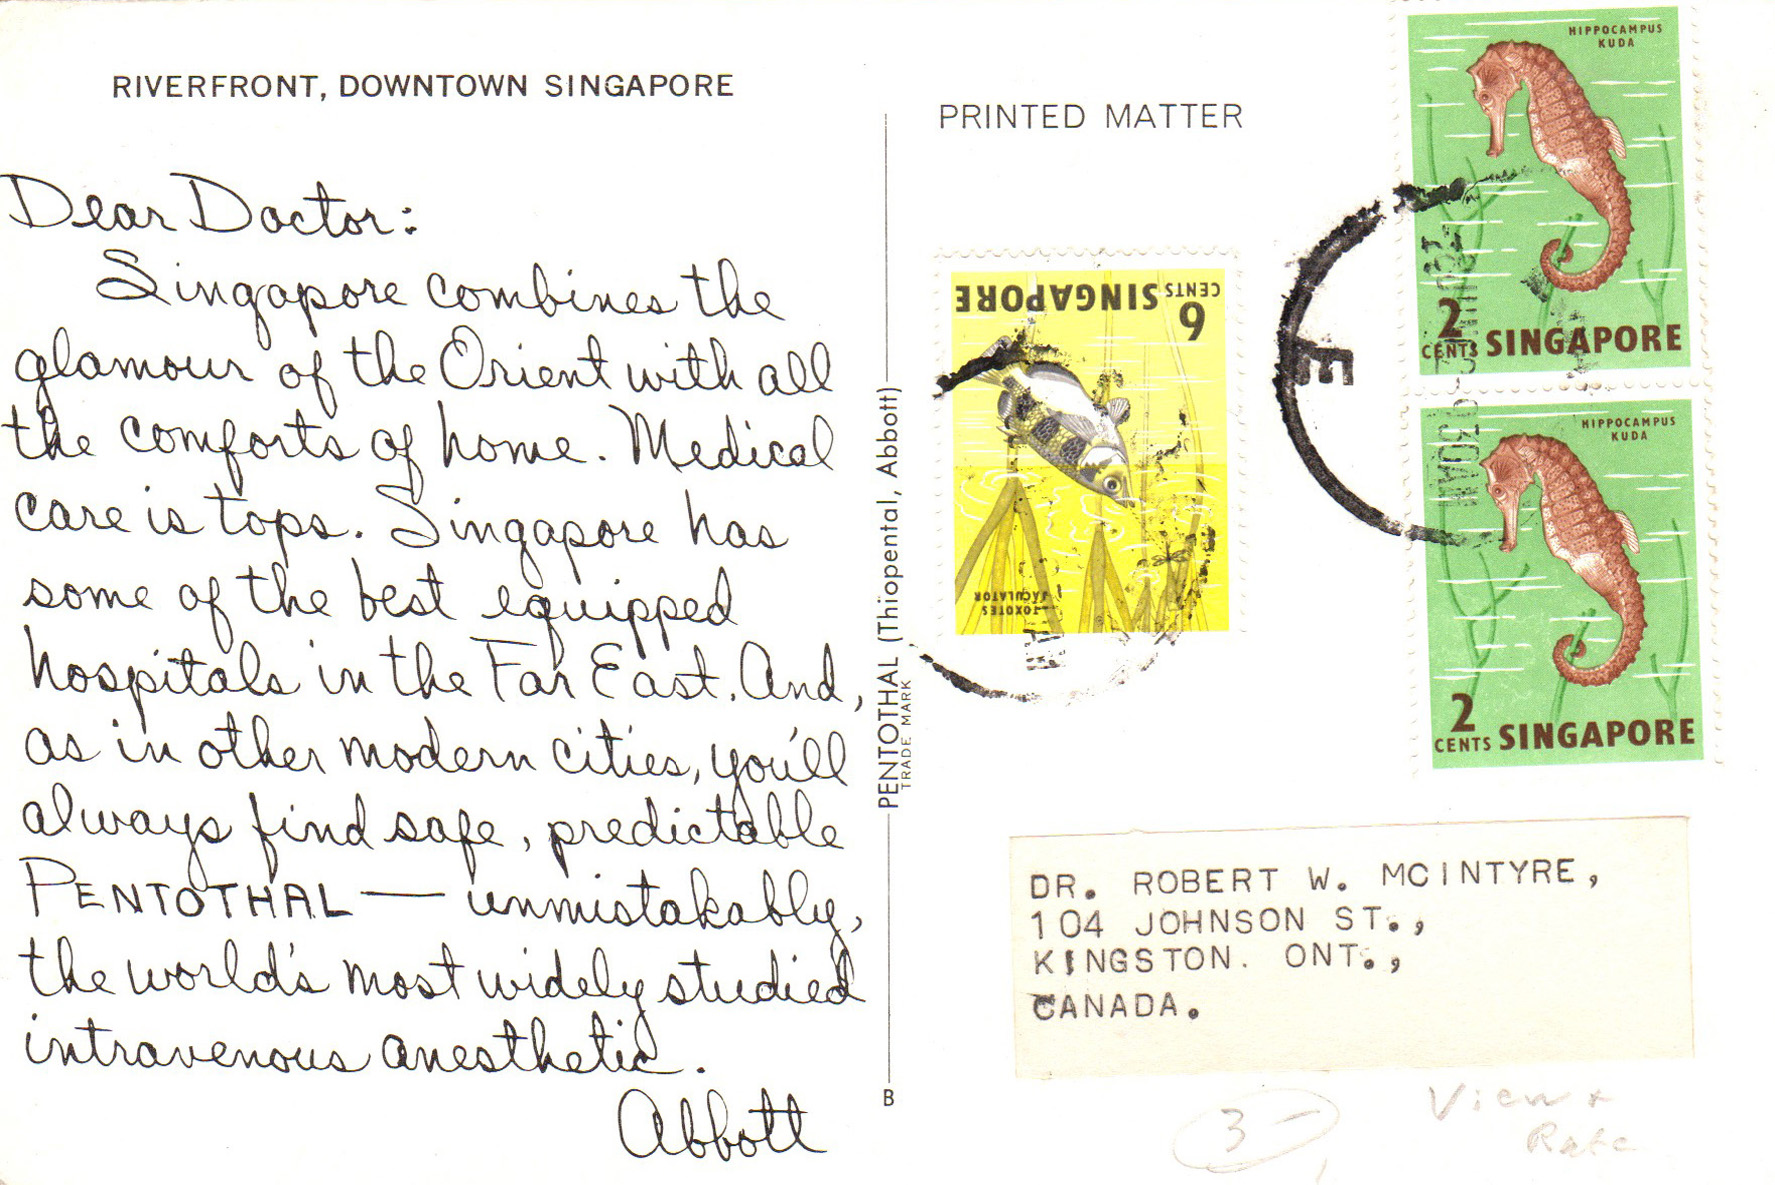 RIVERFRONT, DOWNTOWN SINGAPORE
Dear Doctor:
Singapore combines the
glamour of the Orient with all
the comforts of home. Medical
care is tops. Singapore has
some of the best equipped
hospitals in the Far East. And,
as in other modern cities, you'll
always find safe, predictable
PENTOTHAL — unmistakably,
the world's most widely studied
intravenous anesthetic.
Abbott
PENTOTHAL (Thiopental, Abbott)
TRADE MARK
B
PRINTED MATTER
HIPPOCAMPUS
KUDA
2
CENTS SINGAPORE
HIPPOCAMPUS
KUDA
2
CENTS SINGAPORE
6
CENTS SINGAPORE
TOXOTES
JACULATOR
E
DR. ROBERT W. MCINTYRE,
104 JOHNSON ST.,
KINGSTON. ONT.,
CANADA.
3-
View +
Rate